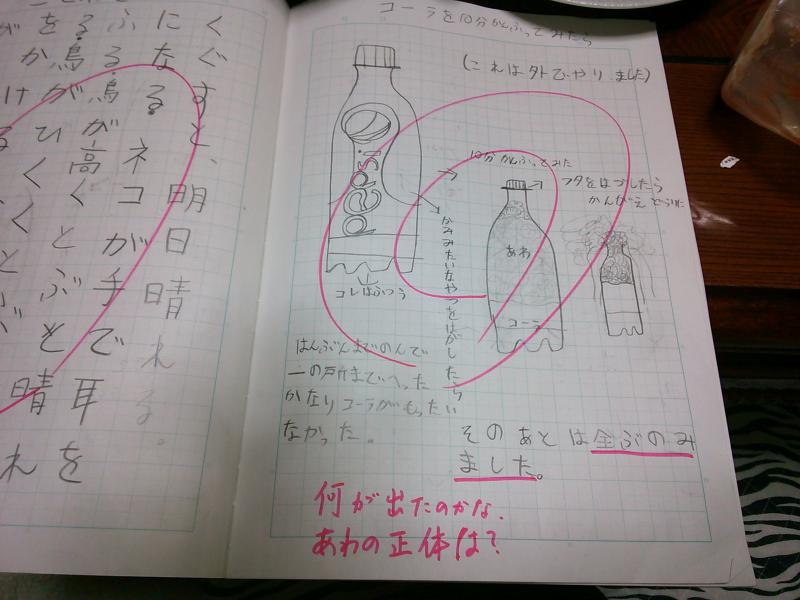 くぐすと、明日晴れる。
になるネコが手で耳を
ふる鳥が高くとぶと晴れ
コーラを10分かんふってみたら
(これは外でやりました)
pepsi
コレはふつう
かみみたいなやつをはがしたら
10分かんふってみた
あわ
コーラ
フタをはづしたら
はんぶんまでのんで
一の所までへった
かなりコーラがもったい
なかった。
そのあとは全ぶのみ
ました。
何が出たのかな。
あわの正体は?